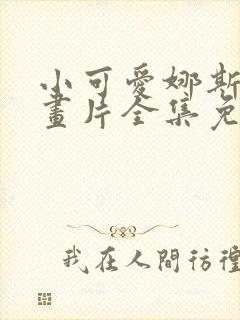 小可愛娜斯
畫片全集免
我在人間彷徨